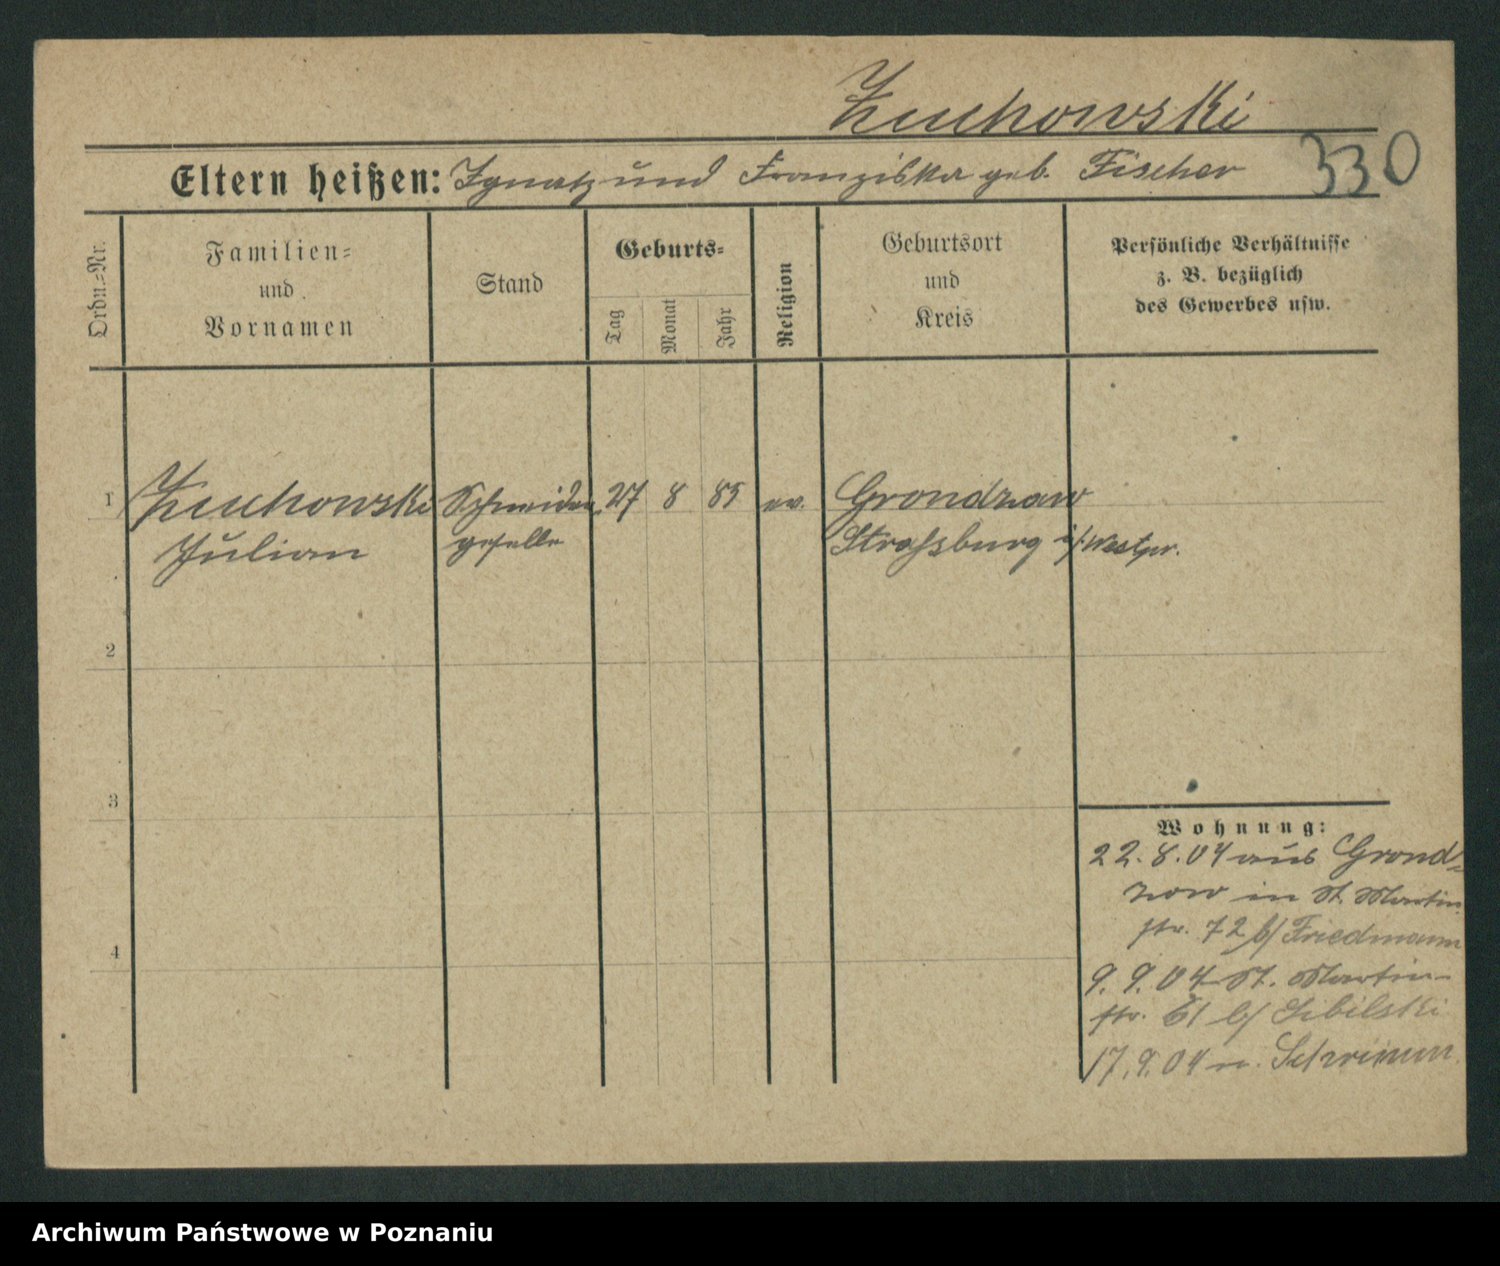 Zuchowski
Eltern heißen: Ignatz und Franziska geb. Fischer
330
Ordn.-Nr.
Familien-
und
Vornamen
Stand
Geburts-
Tag
Monat
Jahr
Religion
Geburtsort
und
Kreis
Persönliche Verhältnisse
z. B. bezüglich
des Gewerbes usw.
1 Zuchowski Schneider 27 8 85 ev. Grondzaw
Julian geselle Straßburg i/Westpr.
2
3
4
Wohnung:
22.8.04 aus Grond-
zaw in St. Martin
str. 72 b/ Friedmann
9.9.04 St. Martin-
str. 61 b/ Sibilski
17.9.04 n. Schrimm
Archiwum Państwowe w Poznaniu